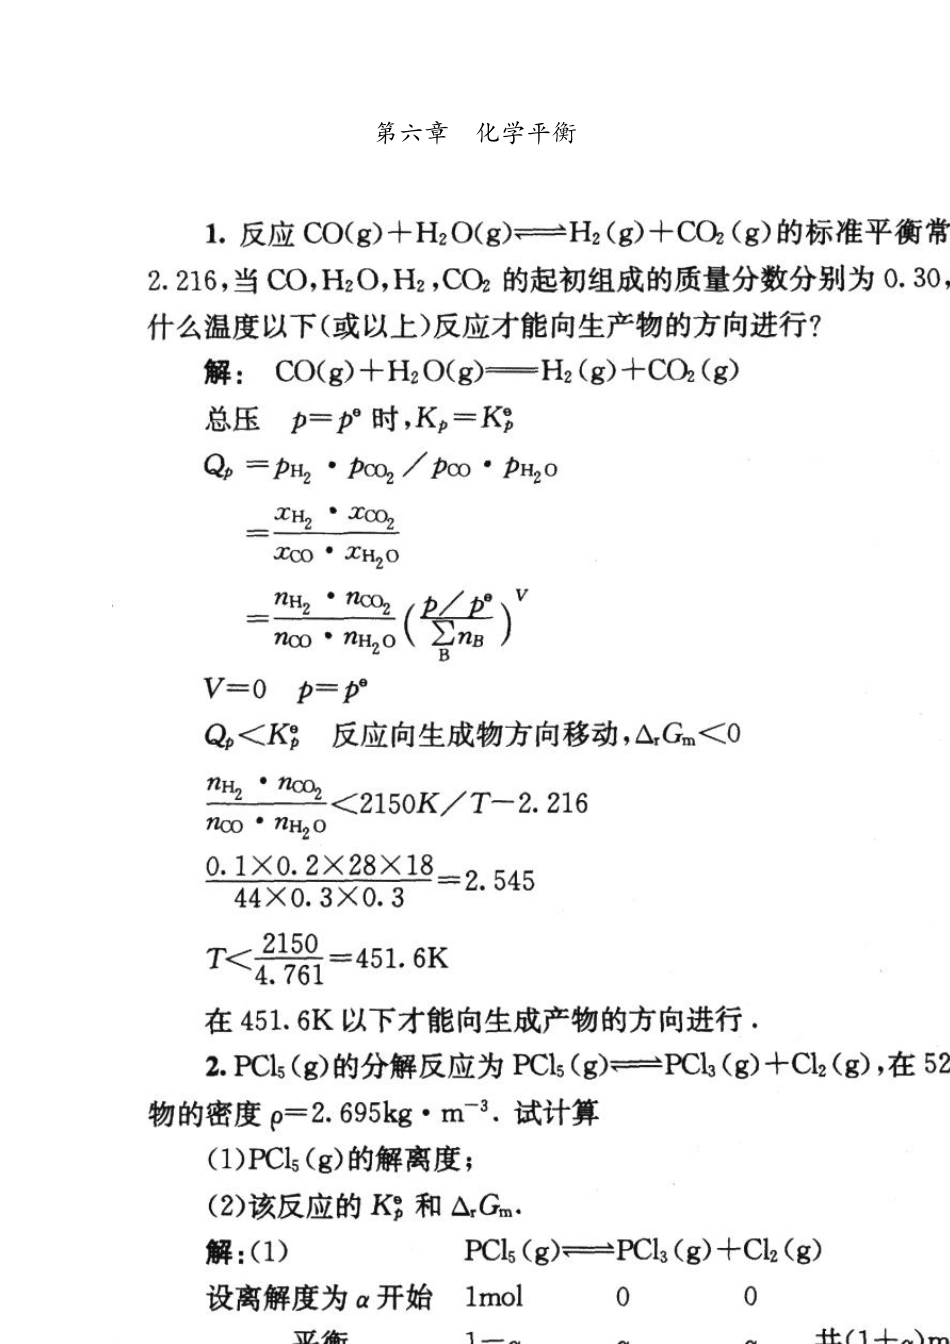 第六章 化学平衡
1. 反应 CO(g)+H₂O(g)⇌H₂(g)+CO₂(g)的标准平衡常
2.216,当 CO,H₂O,H₂,CO₂ 的起初组成的质量分数分别为 0.30,
什么温度以下(或以上)反应才能向生产物的方向进行?
解: CO(g)+H₂O(g)══H₂(g)+CO₂(g)
总压 p=p^⊖ 时,K_p=K_p^⊖
Q_p =p_{H₂}·p_{CO₂}/p_{CO}·p_{H₂O}
=\frac{x_{H₂}·x_{CO₂}}{x_{CO}·x_{H₂O}}
=\frac{n_{H₂}·n_{CO₂}}{n_{CO}·n_{H₂O}}(\frac{p/p^⊖}{\sum_B n_B})^V
V=0 p=p^⊖
Q_p<K_p^⊖ 反应向生成物方向移动,Δ_rG_m<0
\frac{n_{H₂}·n_{CO₂}}{n_{CO}·n_{H₂O}}<2150K/T-2.216
\frac{0.1×0.2×28×18}{44×0.3×0.3}=2.545
T<\frac{2150}{4.761}=451.6K
在 451.6K 以下才能向生成产物的方向进行.
2. PCl₅(g)的分解反应为 PCl₅(g)⇌PCl₃(g)+Cl₂(g),在 52
物的密度 ρ=2.695kg·m⁻³. 试计算
(1)PCl₅(g)的解离度;
(2)该反应的 K_p^⊖ 和 Δ_rG_m.
解:(1) PCl₅(g)⇌PCl₃(g)+Cl₂(g)
设离解度为 α 开始 1mol 0 0
平衡 1-α α α 共(1+α)m